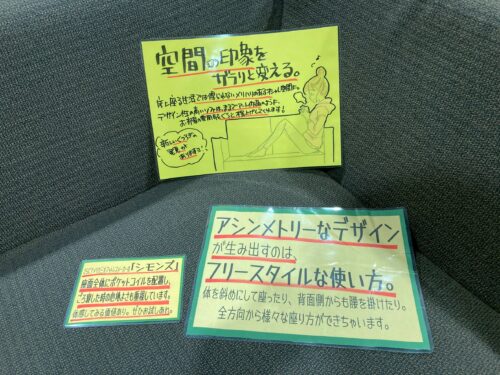 空間の印象を
ガラリと変える。
床に座る生活では感じられないメリハリのある
デザイン性の高いソファは、まるでアートの
お部屋の
新しいくつろぎの
発見が
あります♡
アシンメトリーなデザイン
が生み出すのは、
フリースタイルな使い方。
体を斜めにして座ったり、背面側からも腰を掛けたり。
全方向から様々な座り方ができちゃいます。
「シモンズ」
座面全体にポケットコイルを配置し、
ごろ寝した時の心地よさも重視しています。
体感してみる価値あり。ぜひお試しあれ。